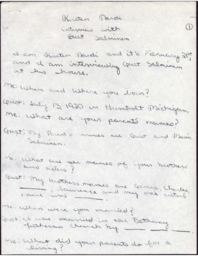 Kristen
interview with
Gust Salminen
①
I am Kristen and it's February 28th,
and I am interviewing Gust Salminen
at his house.
Me: When and where you born?
Gust: July 13, 1920 in Humbolt Michigan
Me: What are your parents' names?
Gust: My names are Gust and
Salminen.
Me: What are the names of your brothers
and sisters?
Gust: My brothers names are George, Charles,
Me: When were you married?
Gust: I was married in the Bethany
Lutheran Church by
Me: What did your parents do for a
living?